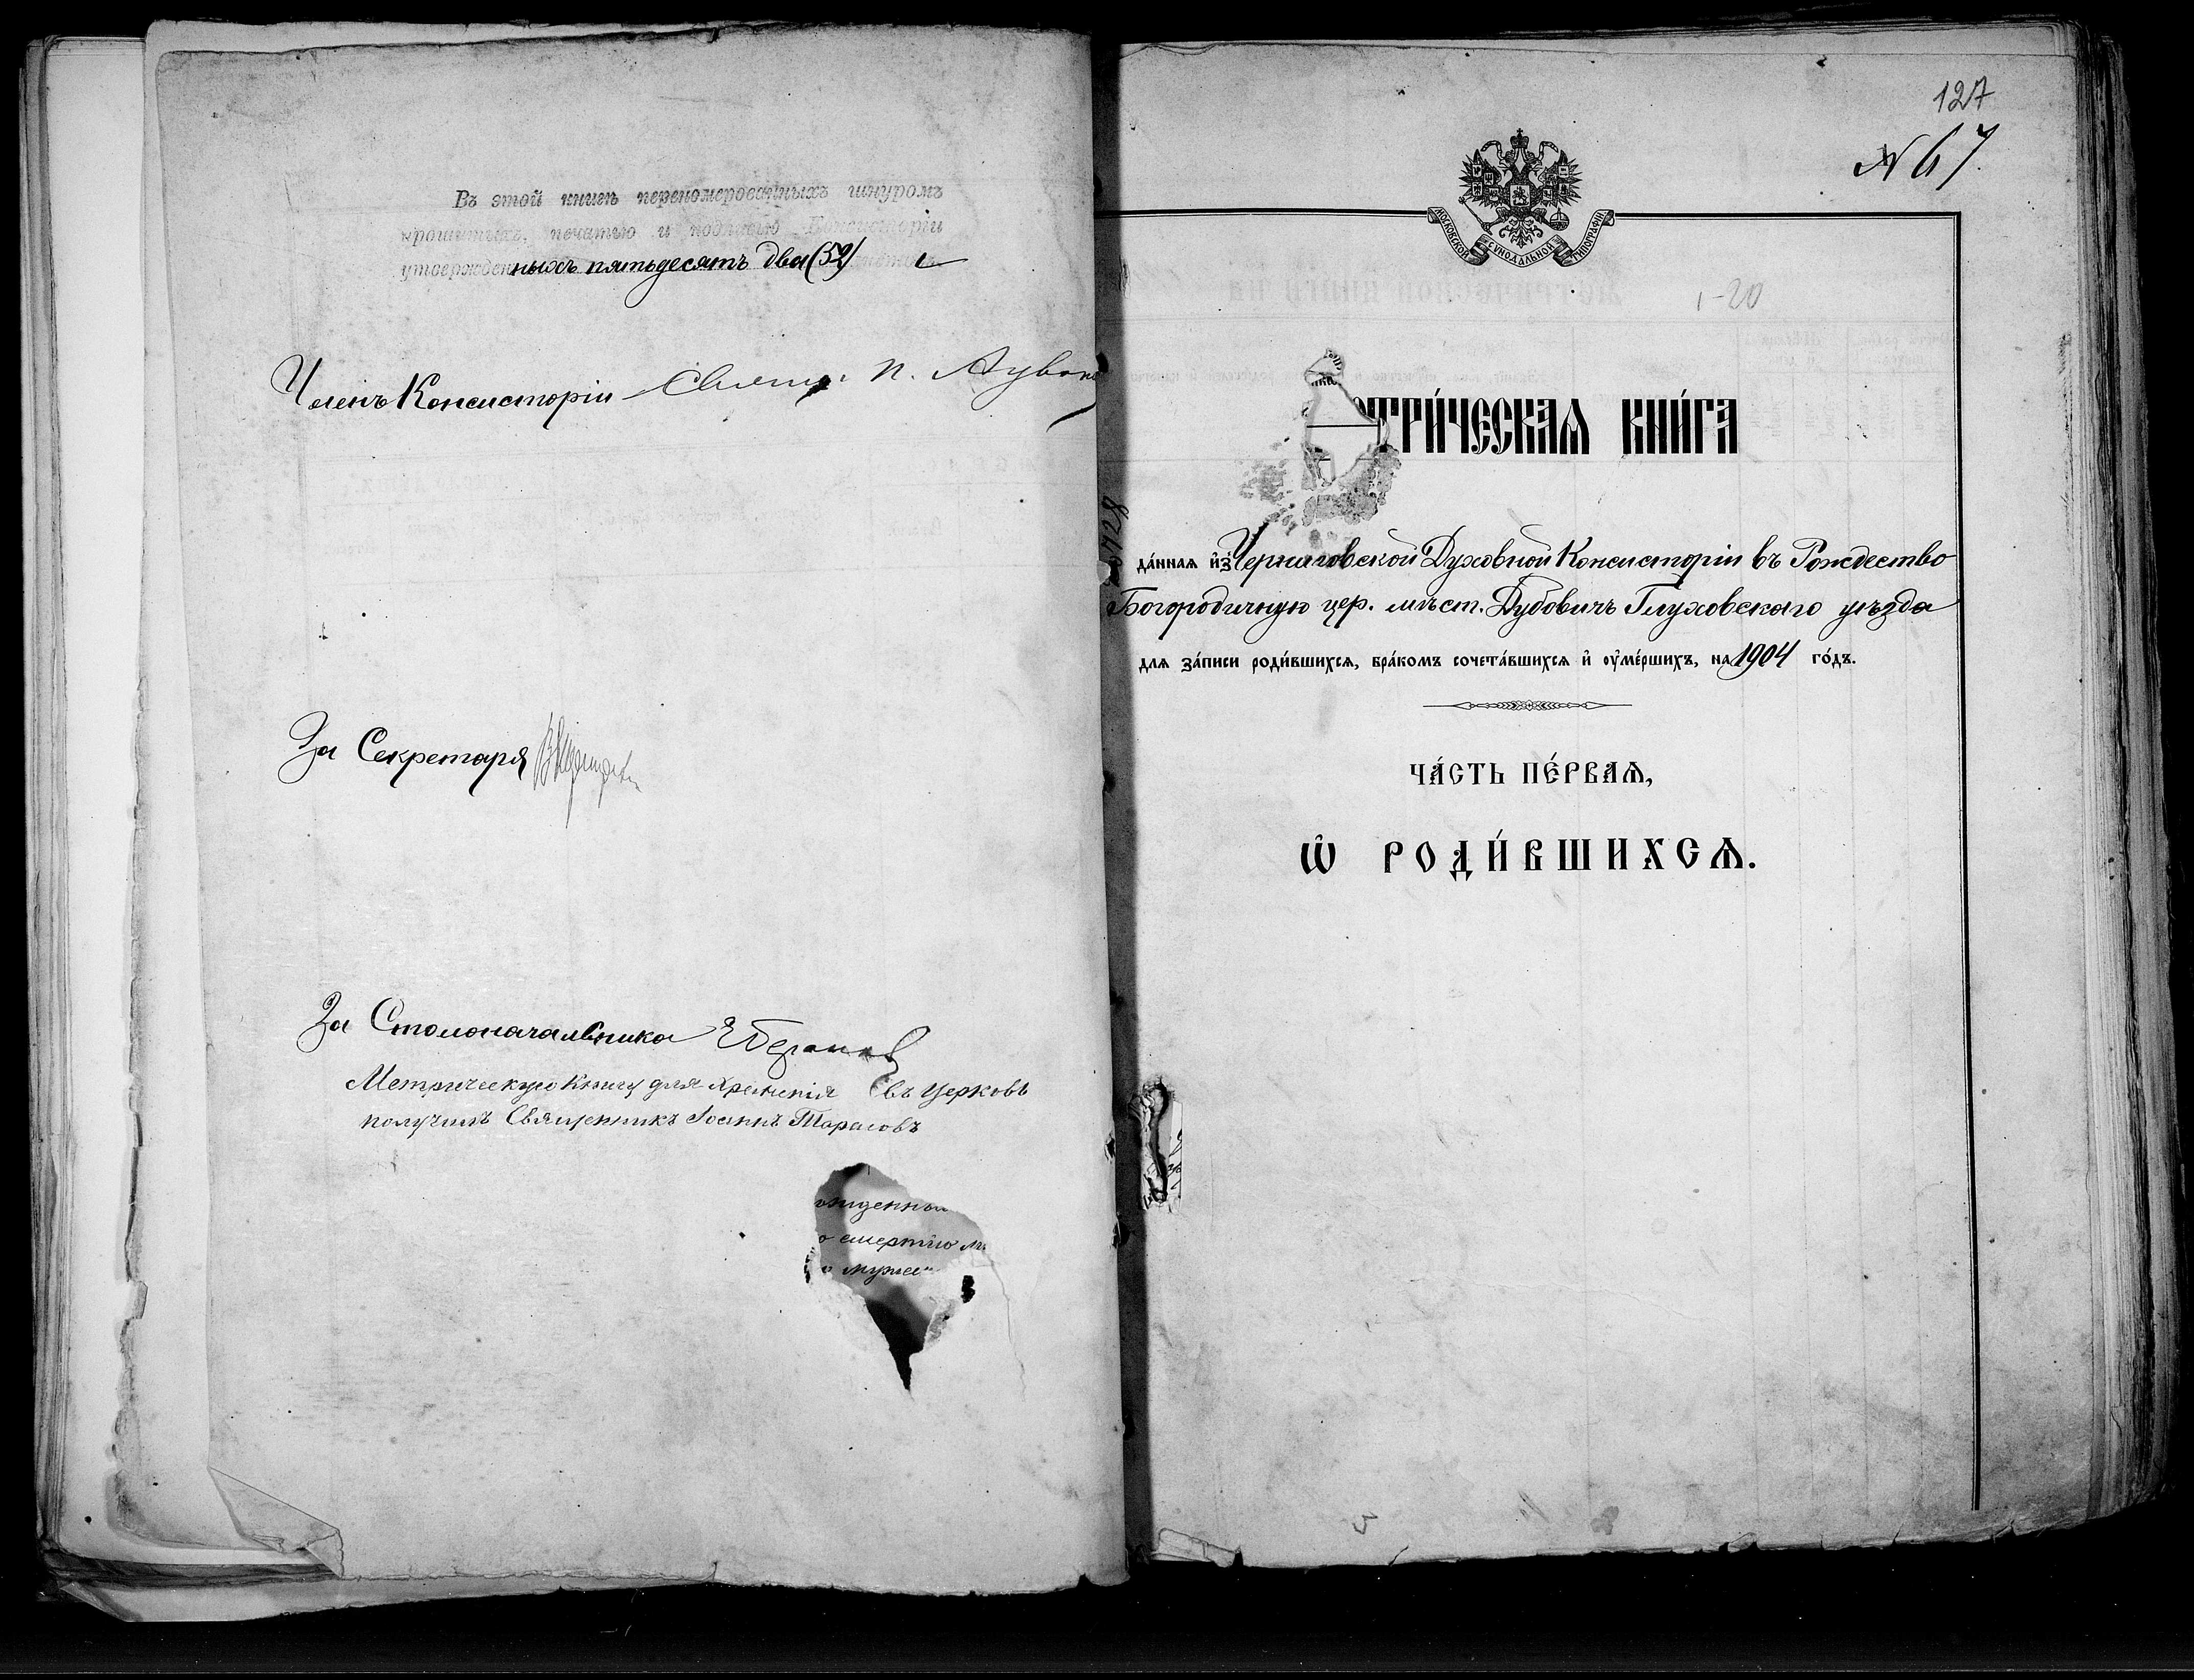 Въ этой книгѣ перенумерованныхъ шнуромъ
прошитыхъ, печатью и подписью Консисторіи
утвержденныхъ пятьдесятъ два (52)
Членъ Консисторіи Священ. П.
За Секретаря
За Столоначальника
Метрическую Книгу для храненія въ Церковь
получилъ Священникъ Іоаннъ Тарасовъ
о смертію
127
№ 67.
МОСКОВСКОЙ СѴНОДАЛЬНОЙ ТИПОГРАФІИ
1-20
ТРИ́ЧЕСКАѦ КНИ́ГА
да́ннаѧ и҆з̾ Черниговской Духовной Консисторіи въ Рождество
Богородичную цер. мѣст. Дубовичъ Глуховскаго уѣзда
длѧ за́писи роди́вшихсѧ, бра́комъ сочета́вшихсѧ и҆ ѹ҆ме́ршихъ, на 1904 го́дъ.
ЧА́СТЬ ПЕ́РВАѦ,
Ѡ҆ РОДИ́ВШИХСѦ.